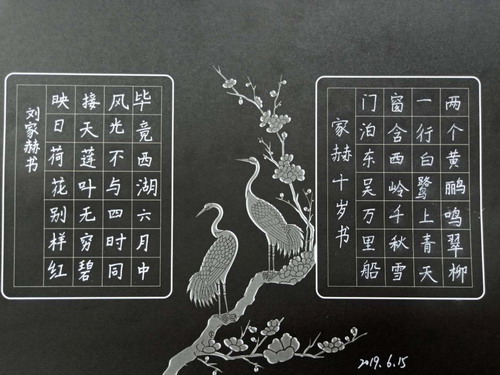 两个黄鹂鸣翠柳
一行白鹭上青天
窗含西岭千秋雪
门泊东吴万里船
家赫十岁书
毕竟西湖六月中
风光不与四时同
接天莲叶无穷碧
映日荷花别样红
刘家赫书
2019.6.15